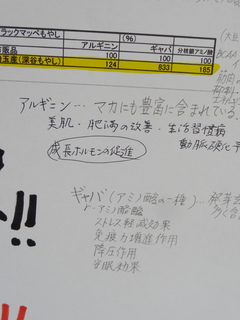 ラックマッペもやし (%)
アルギニン ギャバ 分岐鎖アミノ酸
販品 100 100 100
(深谷もやし) 124 833 185
(大豆
BCAA
筋肉
アルギニン… マカにも豊富に含まれている。
美肌・肥満の改善・生活習慣病
動脈硬化
成長ホルモンの促進
ギャバ(アミノ酸の一種)…発芽
γ-アミノ酪酸
ストレス軽減効果
免疫力増進作用
降圧作用
催眠効果
!!